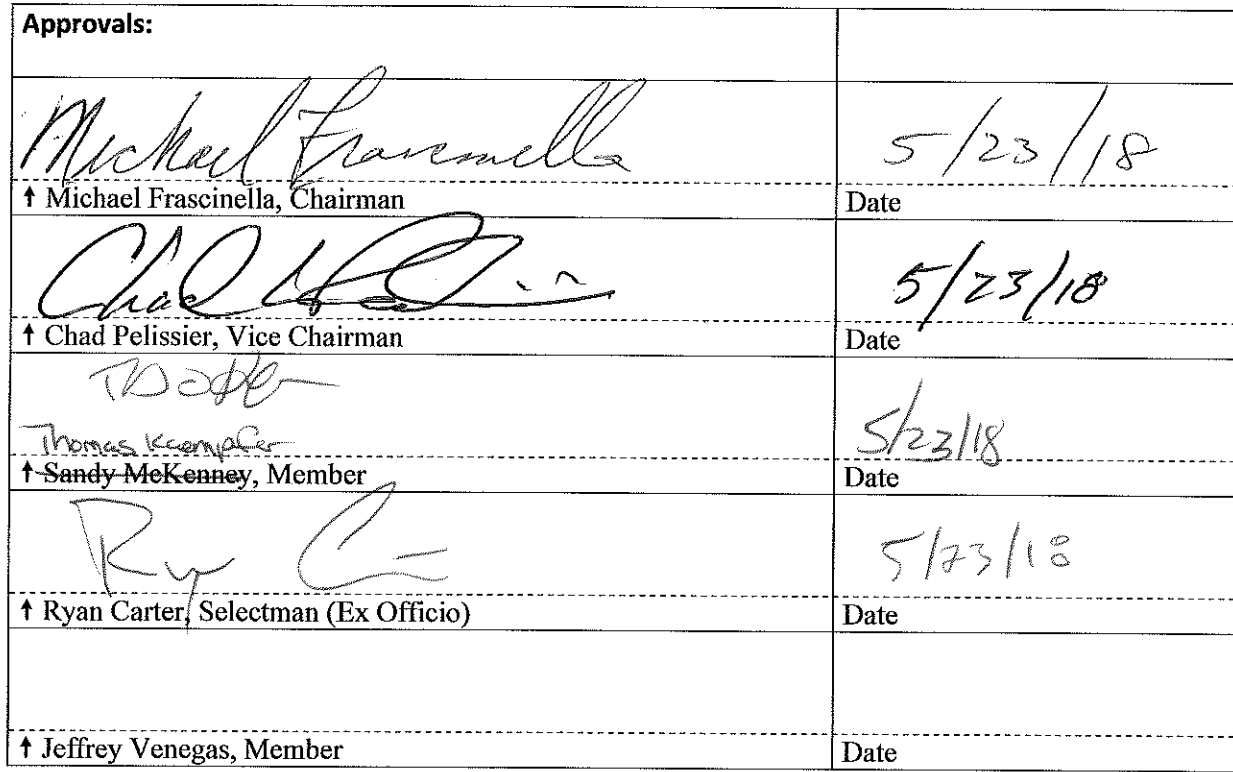 Approvals:
Michael Frascinella 5/23/18
↑ Michael Frascinella, Chairman Date
Chad Pelissier 5/23/18
↑ Chad Pelissier, Vice Chairman Date
Thomas Kaempfer 5/23/18
↑ Sandy McKenney, Member Date
Ryan C 5/23/18
↑ Ryan Carter, Selectman (Ex Officio) Date
↑ Jeffrey Venegas, Member Date